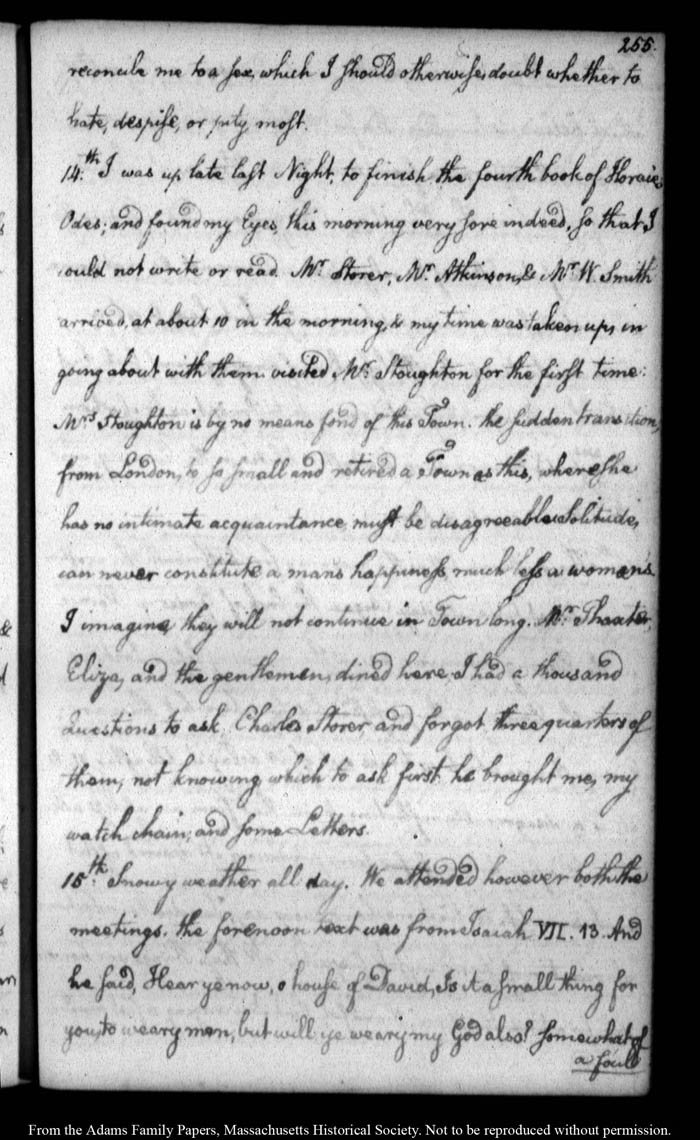 255.
reconcile me to a sex, which I should otherwise, doubt whether to
hate, despise, or pity most.
14.th I was up late last Night, to finish the fourth book of Horace,
Odes; and found my Eyes, this morning very sore indeed, so that I
could not write or read. Mr. Storer, Mr. Atkinson, & Mr. W. Smith
arrived, at about 10 in the morning, & my time was taken up, in
going about with them. visited Mr. Stoughton for the first time:
Mrs. Stoughton is by no means fond of this Town. the sudden transition,
from London, to so small and retired a Town as this, where she
has no intimate acquaintance must be disagreeable. Solitude,
can never constitute a mans happiness, much less a woman's.
I imagine, they will not continue in Town long. Mr. Thaxter,
Eliza, and the gentlemen, dined here. I had a thousand
Questions to ask, Charles Storer and forgot three quarters of
them, not knowing which to ask first. he brought me, my
watch chain, and some Letters.
15th. Snowy weather all day. We attended however both the
meetings. the forenoon text was from Isaiah VII. 13. And
he said, Hear ye now, o house of David, Is it a small thing for
you, to weary men, but will ye weary my God also? somewhat of
a foul
From the Adams Family Papers, Massachusetts Historical Society. Not to be reproduced without permission.